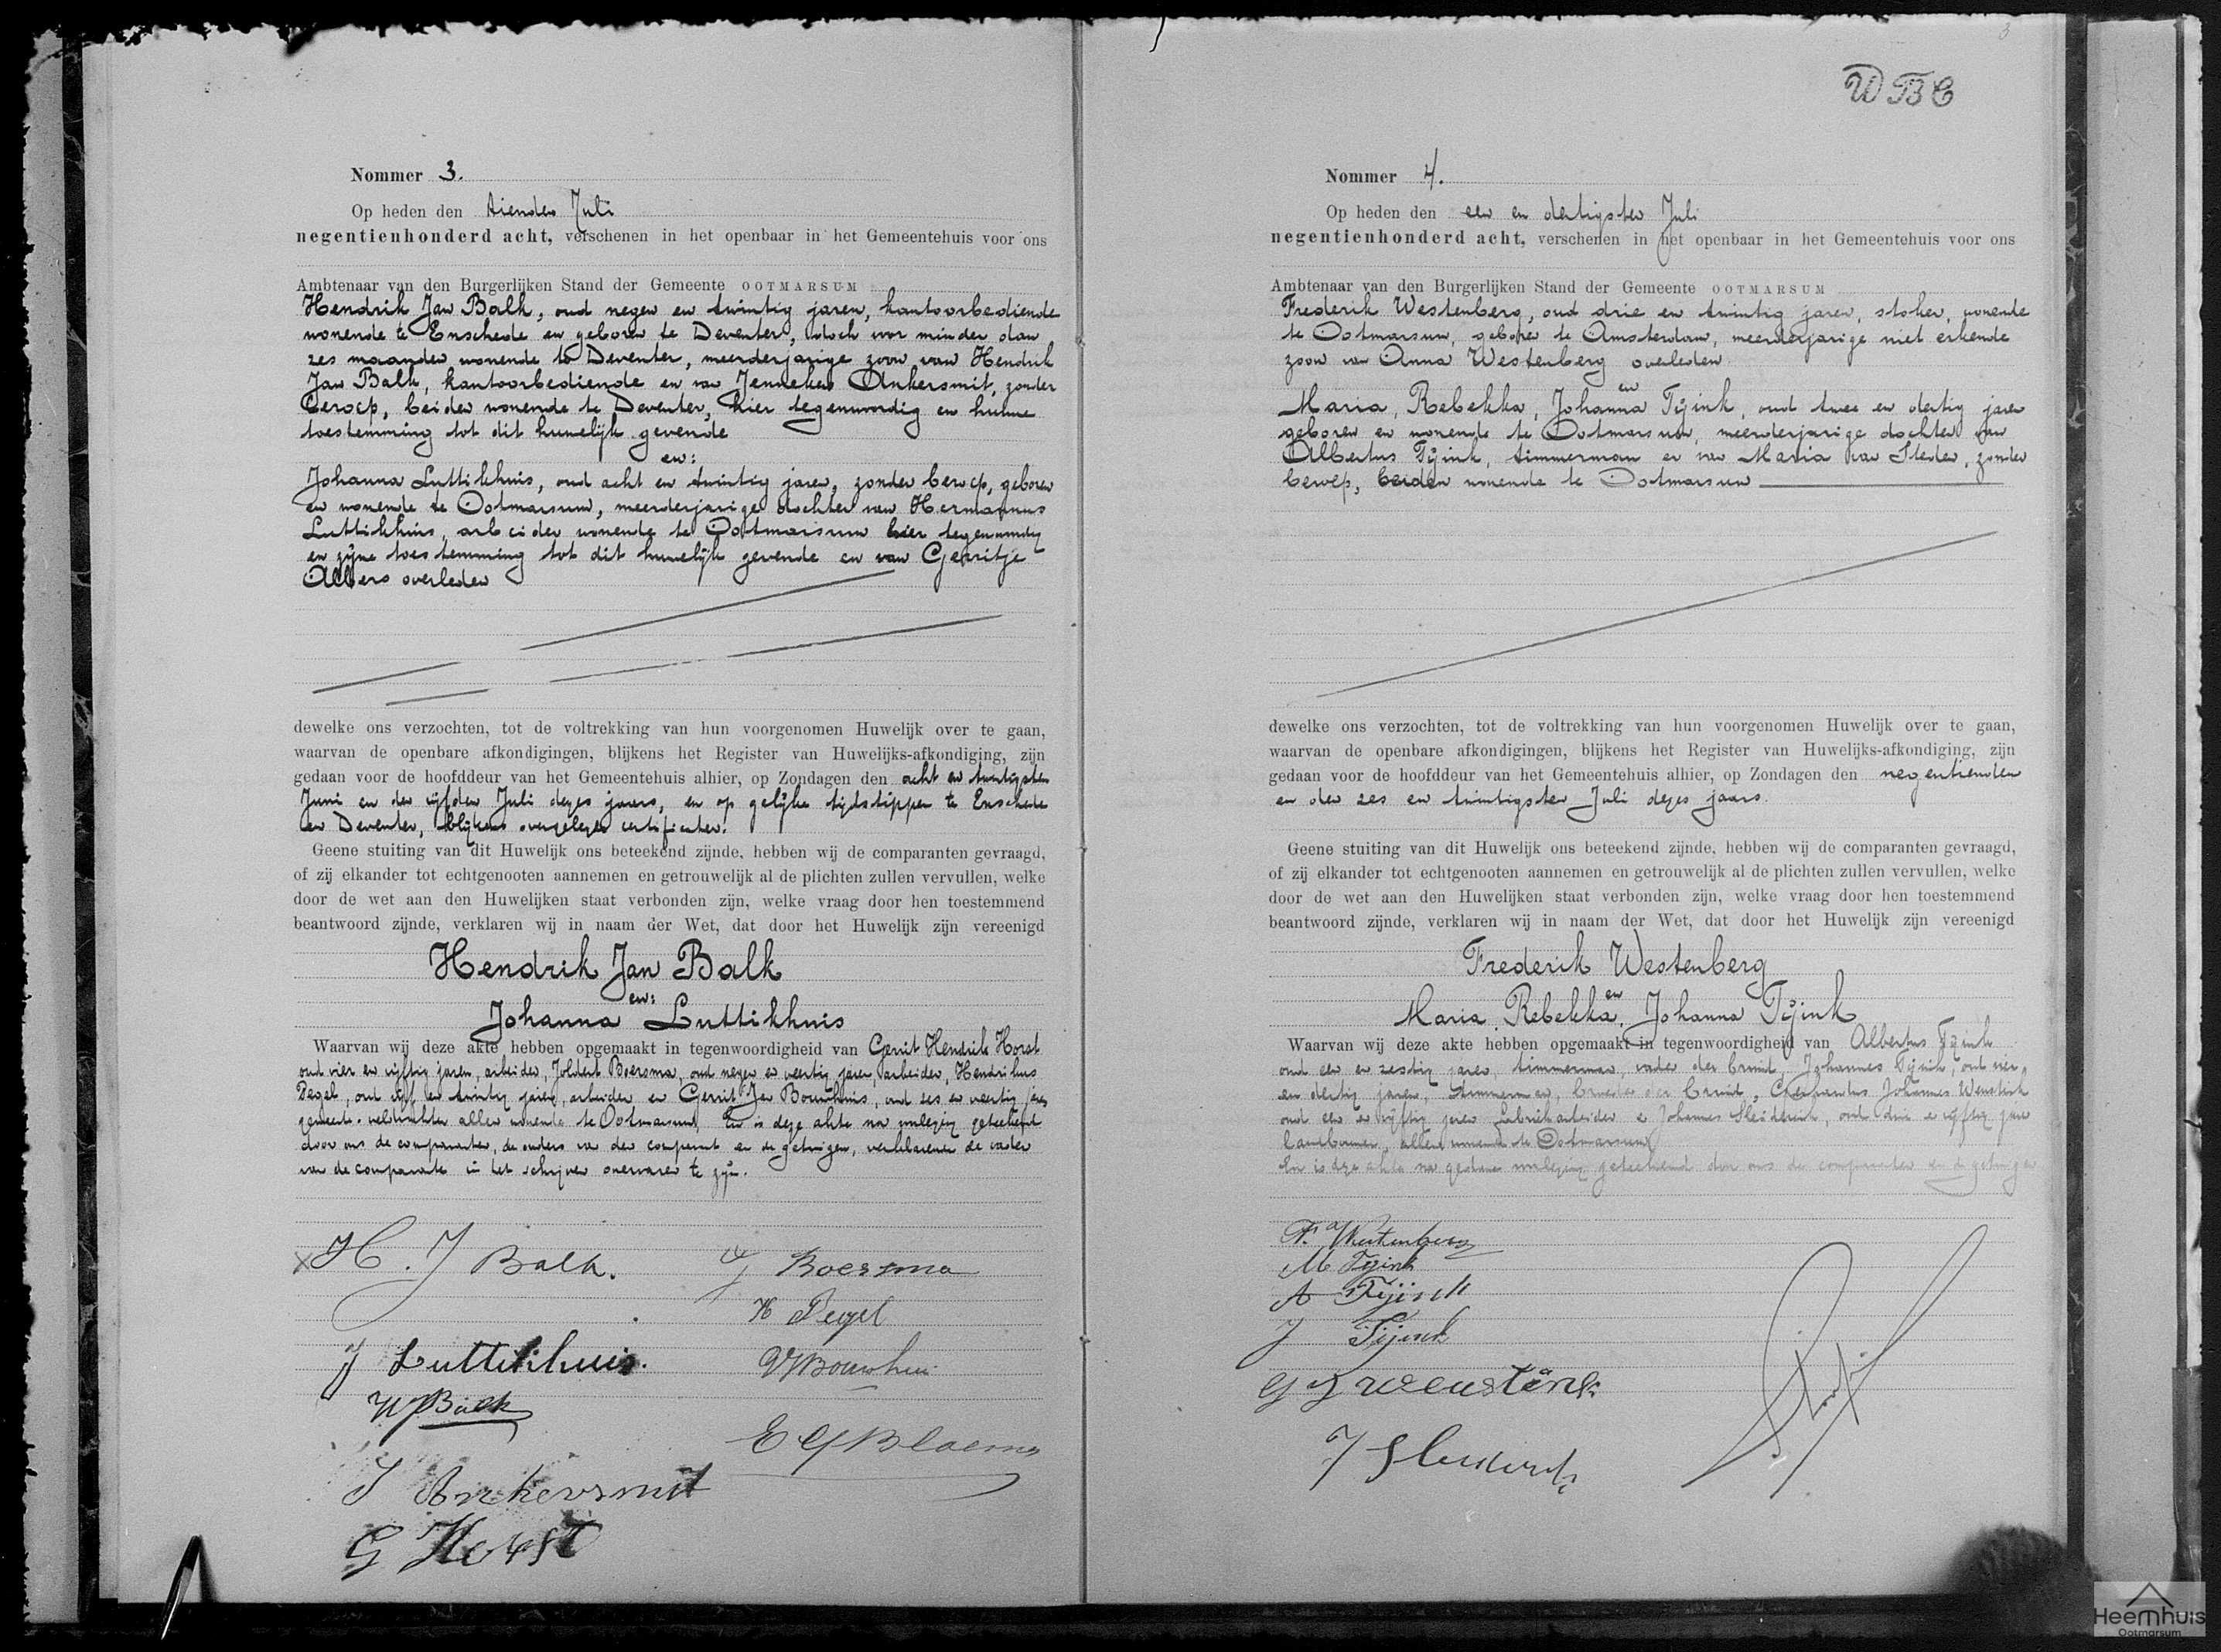 Nommer 3.
Op heden den tienden Juli
negentienhonderd acht, verschenen in het openbaar in het Gemeentehuis voor ons
Ambtenaar van den Burgerlijken Stand der Gemeente OOTMARSUM
Hendrik Jan Balk, oud negen en twintig jaren, kantoorbediende
wonende te Enschede en geboren te Deventer, doch voor minder dan
zes maanden wonende te Deventer, meerderjarige zoon van Hendrik
Jan Balk, kantoorbediende en van Jenneken Ankersmit, zonder
beroep, beiden wonende te Deventer, hier tegenwoordig en hunne
toestemming tot dit huwelijk gevende
en:
Johanna Luttikhuis, oud acht en twintig jaren, zonder beroep, geboren
en wonende te Ootmarsum, meerderjarige dochter van Hermannus
Luttikhuis, arbeider wonende te Ootmarsum hier tegenwoordig
en zijne toestemming tot dit huwelijk gevende en van Gerritje
Albers overleden
dewelke ons verzochten, tot de voltrekking van hun voorgenomen Huwelijk over te gaan,
waarvan de openbare afkondigingen, blijkens het Register van Huwelijks-afkondiging, zijn
gedaan voor de hoofddeur van het Gemeentehuis alhier, op Zondagen den acht en twintigsten
Juni en den vijfden Juli dezes jaars, en op gelijke tijdstippen te Enschede
en Deventer, blijkens overgelegde certificaten.
Geene stuiting van dit Huwelijk ons beteekend zijnde, hebben wij de comparanten gevraagd,
of zij elkander tot echtgenooten aannemen en getrouwelijk al de plichten zullen vervullen, welke
door de wet aan den Huwelijken staat verbonden zijn, welke vraag door hen toestemmend
beantwoord zijnde, verklaren wij in naam der Wet, dat door het Huwelijk zijn vereenigd
Hendrik Jan Balk
en:
Johanna Luttikhuis
Waarvan wij deze akte hebben opgemaakt in tegenwoordigheid van Gerrit Hendrik Horst
oud vier en vijftig jaren, arbeider, Joldert Boersma, oud negen en veertig jaren, arbeider, Hendrikus
Pegel, oud vijf en twintig jaren, arbeider en Gerrit Jan Bouwhuis, oud zes en veertig jaren
gemeente-veldwachter allen wonende te Ootmarsum, En is deze akte na voorlezing geteekend
door ons de comparanten, de ouders van den comparant en de getuigen, verklarende de vader
van de comparante in het schrijven onervaren te zijn.
H. J Balk.
J Boersma
H Pegel
J Luttikhuis.
GJBouwhuis
HJBalk
E G Bloemen
J Ankersmit
G Horst
3
WBC
Nommer 4.
Op heden den een en dertigsten Juli
negentienhonderd acht, verschenen in het openbaar in het Gemeentehuis voor ons
Ambtenaar van den Burgerlijken Stand der Gemeente OOTMARSUM
Frederik Westenberg, oud drie en twintig jaren, stoker, wonende
te Ootmarsum, geboren te Amsterdam, meerderjarige niet erkende
zoon van Anna Westenberg overleden
en
Maria, Rebekka, Johanna Tijink, oud twee en dertig jaren
geboren en wonende te Ootmarsum, meerderjarige dochter van
Albertus Tijink, timmerman en van Maria van Steden, zonder
beroep, beiden wonende te Ootmarsum
dewelke ons verzochten, tot de voltrekking van hun voorgenomen Huwelijk over te gaan,
waarvan de openbare afkondigingen, blijkens het Register van Huwelijks-afkondiging, zijn
gedaan voor de hoofddeur van het Gemeentehuis alhier, op Zondagen den negentienden
en den zes en twintigsten Juli dezes jaars.
Geene stuiting van dit Huwelijk ons beteekend zijnde, hebben wij de comparanten gevraagd,
of zij elkander tot echtgenooten aannemen en getrouwelijk al de plichten zullen vervullen, welke
door de wet aan den Huwelijken staat verbonden zijn, welke vraag door hen toestemmend
beantwoord zijnde, verklaren wij in naam der Wet, dat door het Huwelijk zijn vereenigd
Frederik Westenberg
en
Maria, Rebekka, Johanna Tijink
Waarvan wij deze akte hebben opgemaakt in tegenwoordigheid van Albertus Tijink
oud een en zestig jaren, timmerman, vader der bruid, Johannes Tijink, oud vier
en dertig jaren, timmerman, broeder der bruid, Gerhardus Johannes Weustink
oud een en vijftig jaren fabriekarbeider en Johannes Sleiderink, oud drie en vijftig jaren
landbouwer, allen wonende te Ootmarsum
En is deze akte na gedane voorlezing geteekend door ons de comparanten en de getuigen
F. Westenberg
M Tijink
A Tijink
J Tijink
G J Weustink
J Sleiderink
Heemhuis
Ootmarsum